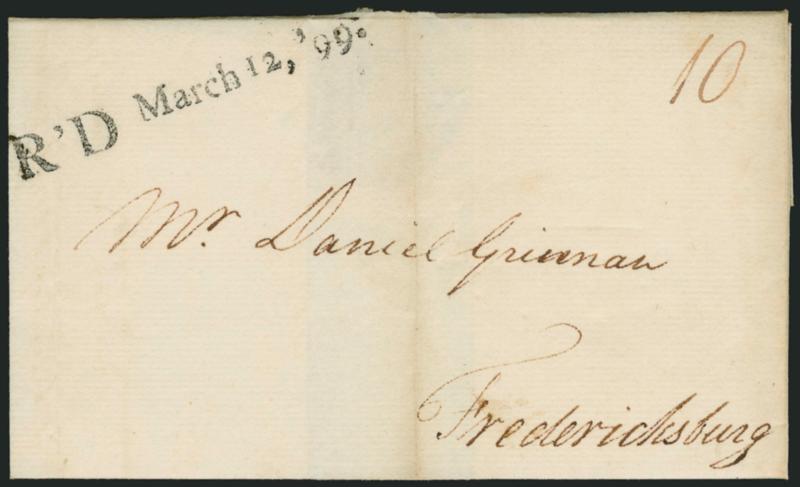 R'D March 12, '99.
10
Mr. Daniel Grinnan
Fredericksburg